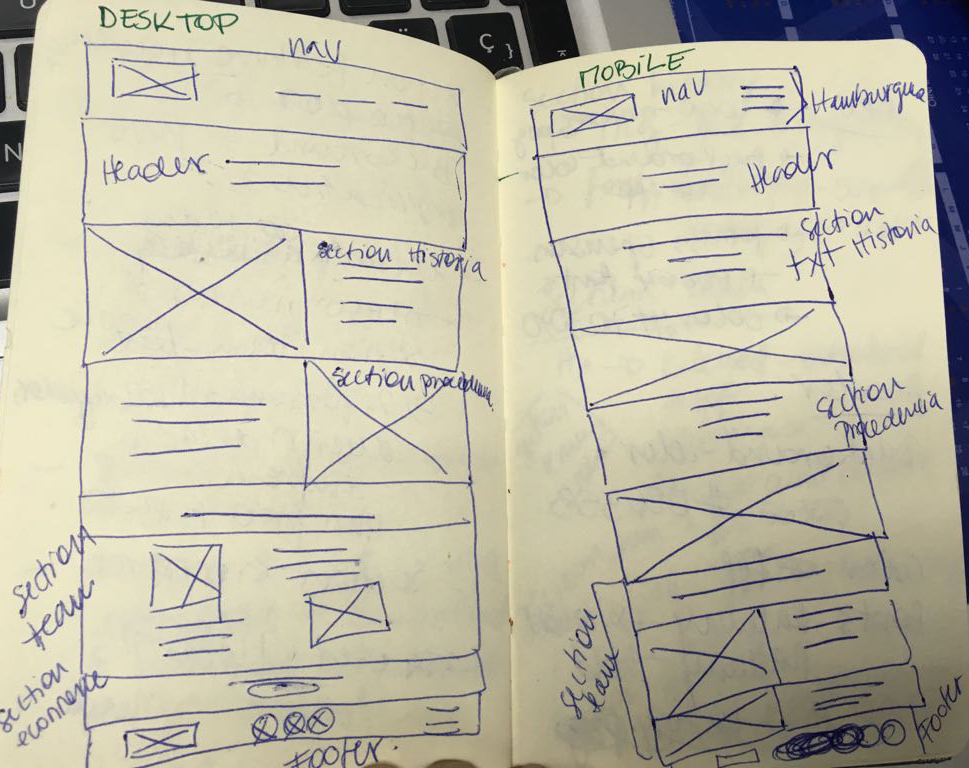 DESKTOP
nav
Header
Section Historia
Section procedencia
Section
team
Section
ecommerce
Footer
MOBILE
nav
Hamburguesa
Header
Section
txt Historia
Section
Procedencia
Section
team
Footer
Ç }
N